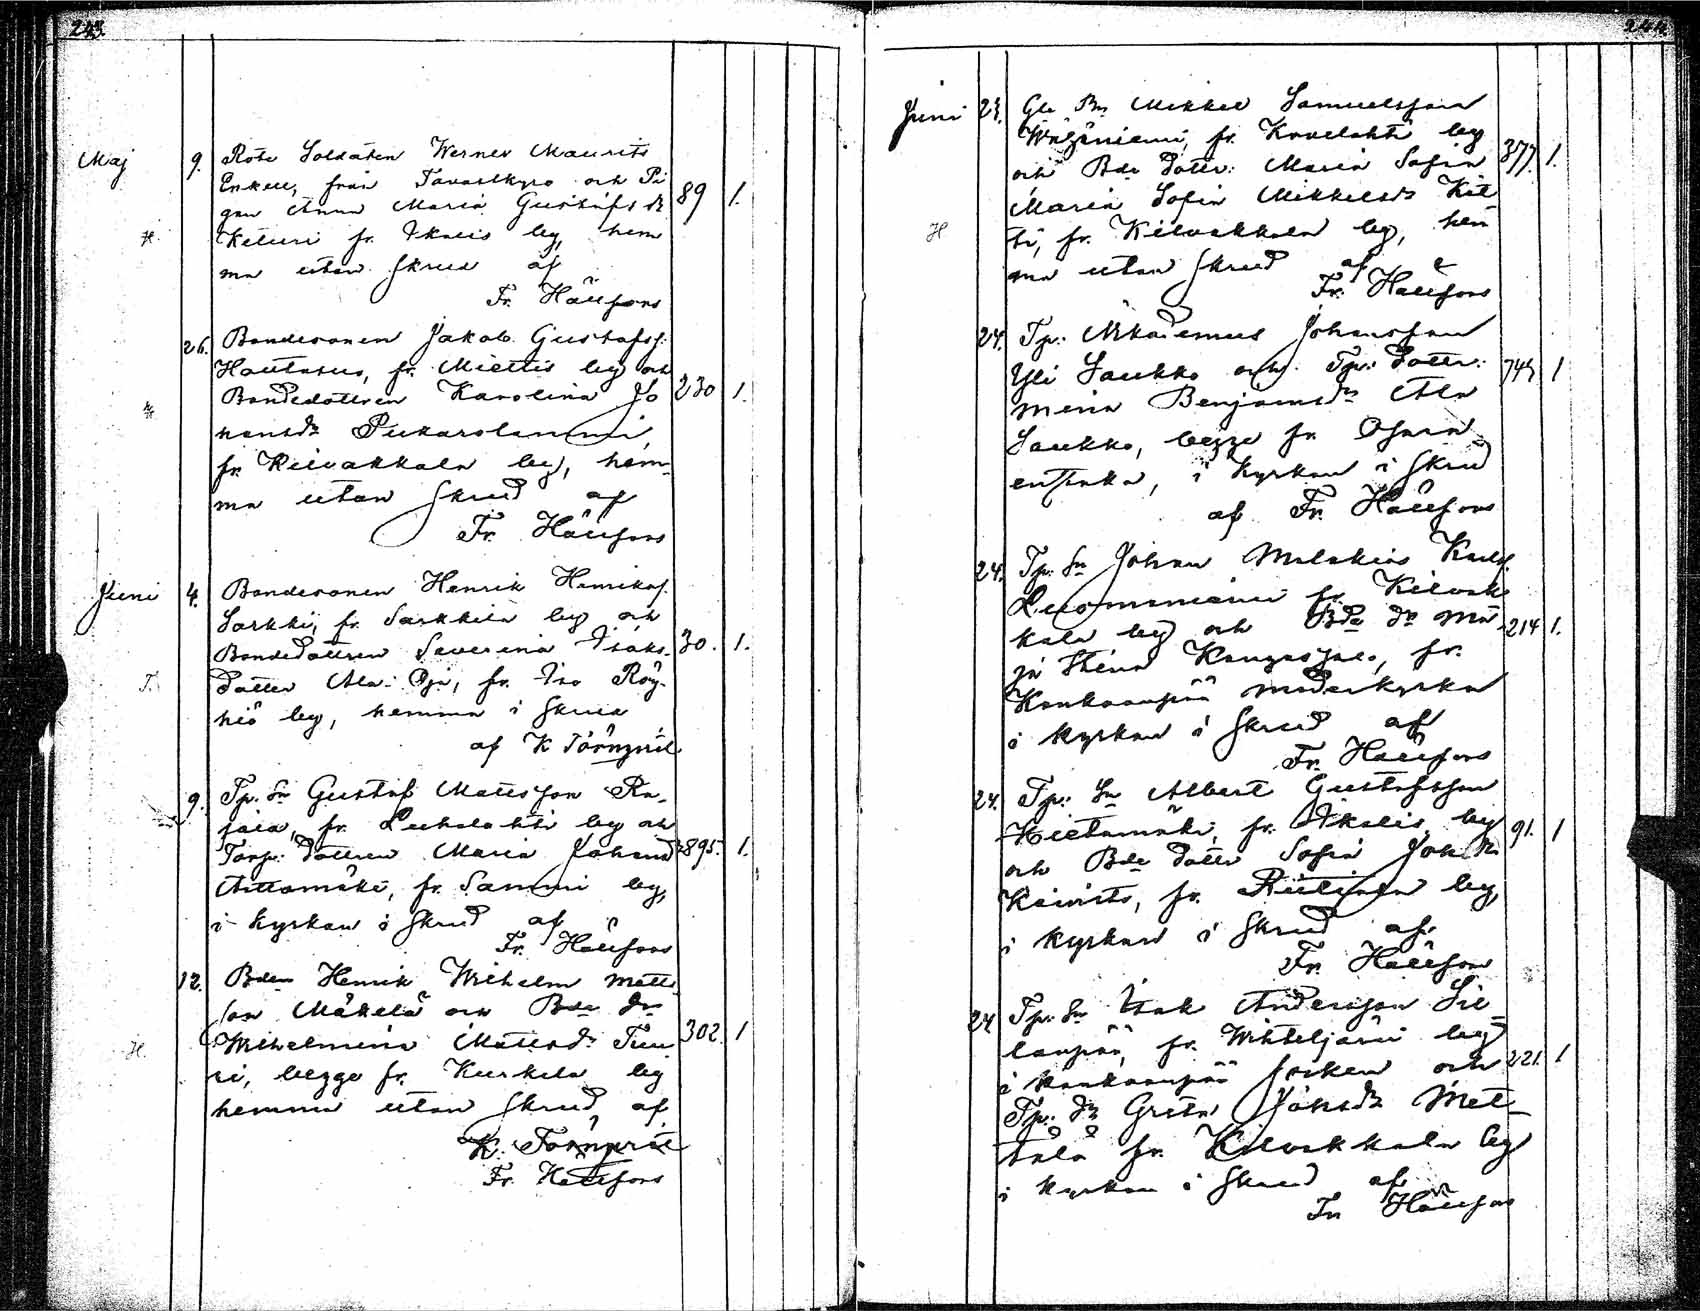 243.
Maj 9. Rote Soldaten Werner Maurits
Enkell, från Tavastkyro och Pi
gan Anna Maria Gustafsdr 89 1.
H. Keturi fr. Ikalis by, hem
ma utan Skrud af
Fr. Hällfors
26. Bondesonen Jakob Gustafss:
Hautanen, fr. Miettis by och
H Bondedottren Karolina Jo 230 1.
hansdr
fr. Kilvakkala by, hem-
ma utan Skrud af
Fr. Hällfors
Juni 4. Bondesonen Henrik Henrikss.
Sarkki, fr. Sarkkila by och
Bondedottren Severina Isaks- 30. 1.
T. dotter Ala fr. Iso Röy-
hiö by, hemma i Skrud
af K Törnqvist
9. Tp. Sn Gustaf Matsson Ra-
jala, fr. Luhalahti by och
Torp: dottren Maria Johansd 895. 1.
Aittomäki, fr. Sammi by,
i kyrkan i Skrud af
Fr. Hällfors
12. Bden Henrik Wilhelm Matts
son Mäkelä och Bde dr
H. Wilhelmina Mattsdr 302. 1
ri, begge fr. Kurkela by
hemma utan Skrud, af
K. Törnqvist
Fr. Hällfors
244
Juni 23. Mikkel Samuelsson
fr. Kovelahti by
och Bde dotter: Maria Sofia 377. 1.
Maria Sofia Mikkelsdr Kit
H ti, fr. Kilvakkala by, hem
ma utan Skrud af
Fr. Hällfors
24. Tp: Nikodemus Johansson
Yli Saukko och Tp: dotter: 745 1
Mina Benjamsdr Ala
Saukko, begge fr. Osara
, i kyrkan i Skrud
af Fr. Hällfors
24. Tp: Sn Johan Malakias Karls
Luomaniemi fr. Kilvak
kala by och Bde dr Ma 214 1.
ja Stina fr.
Kankaanpää moderkyrka
i kyrkan i Skrud af
Fr. Hällfors
24. Tp: Sn Albert Gustafsson
Kietämäki, fr. Ikalis by 91. 1
och Bde dotter Sofia Johdr
fr. Riitiala by,
i kyrkan i Skrud af
Fr. Hällfors
24 Tp: Sn Isak Andersson Sil
lanpää, fr. Wihteljärvi by
i Kankaanpää socken och 221. 1
Tp: dr Greta Johsdr Met
tälä fr. Kilvakkala by
i kyrkan i Skrud af
Fr Hällfors